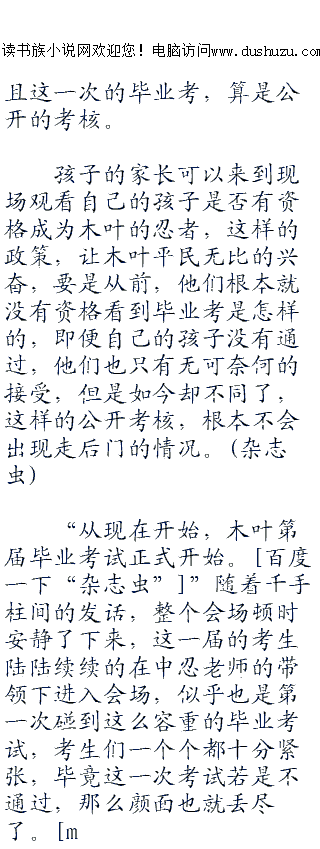 读书族小说网欢迎您！电脑访问www.dushuzu.com
且这一次的毕业考，算是公
开的考核。
孩子的家长可以来到现
场观看自己的孩子是否有资
格成为木叶的忍者，这样的
政策，让木叶平民无比的兴
奋，要是从前，他们根本就
没有资格看到毕业考是怎样
的，即便自己的孩子没有通
过，他们也只有无可奈何的
接受，但是如今却不同了，
这样的公开考核，根本不会
出现走后门的情况。(杂志
虫)
“从现在开始，木叶第
届毕业考试正式开始。[百度
一下“杂志虫”]”随着千手
柱间的发话，整个会场顿时
安静了下来，这一届的考生
陆陆续续的在中忍老师的带
领下进入会场，似乎也是第
一次碰到这么容重的毕业考
试，考生们一个个都十分紧
张，毕竟这一次考试若是不
通过，那么颜面也就丢尽
了。[m